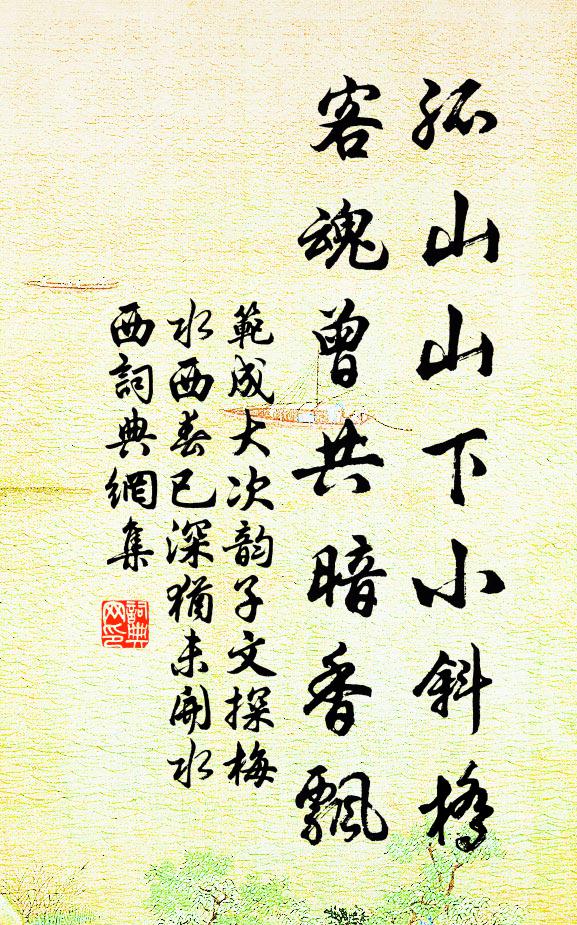 孤山山下小斜橋
客魂曾共暗香飄
範成大次韵子文探梅
水西春已深猶未開水
西詞典網集
詞典
网印